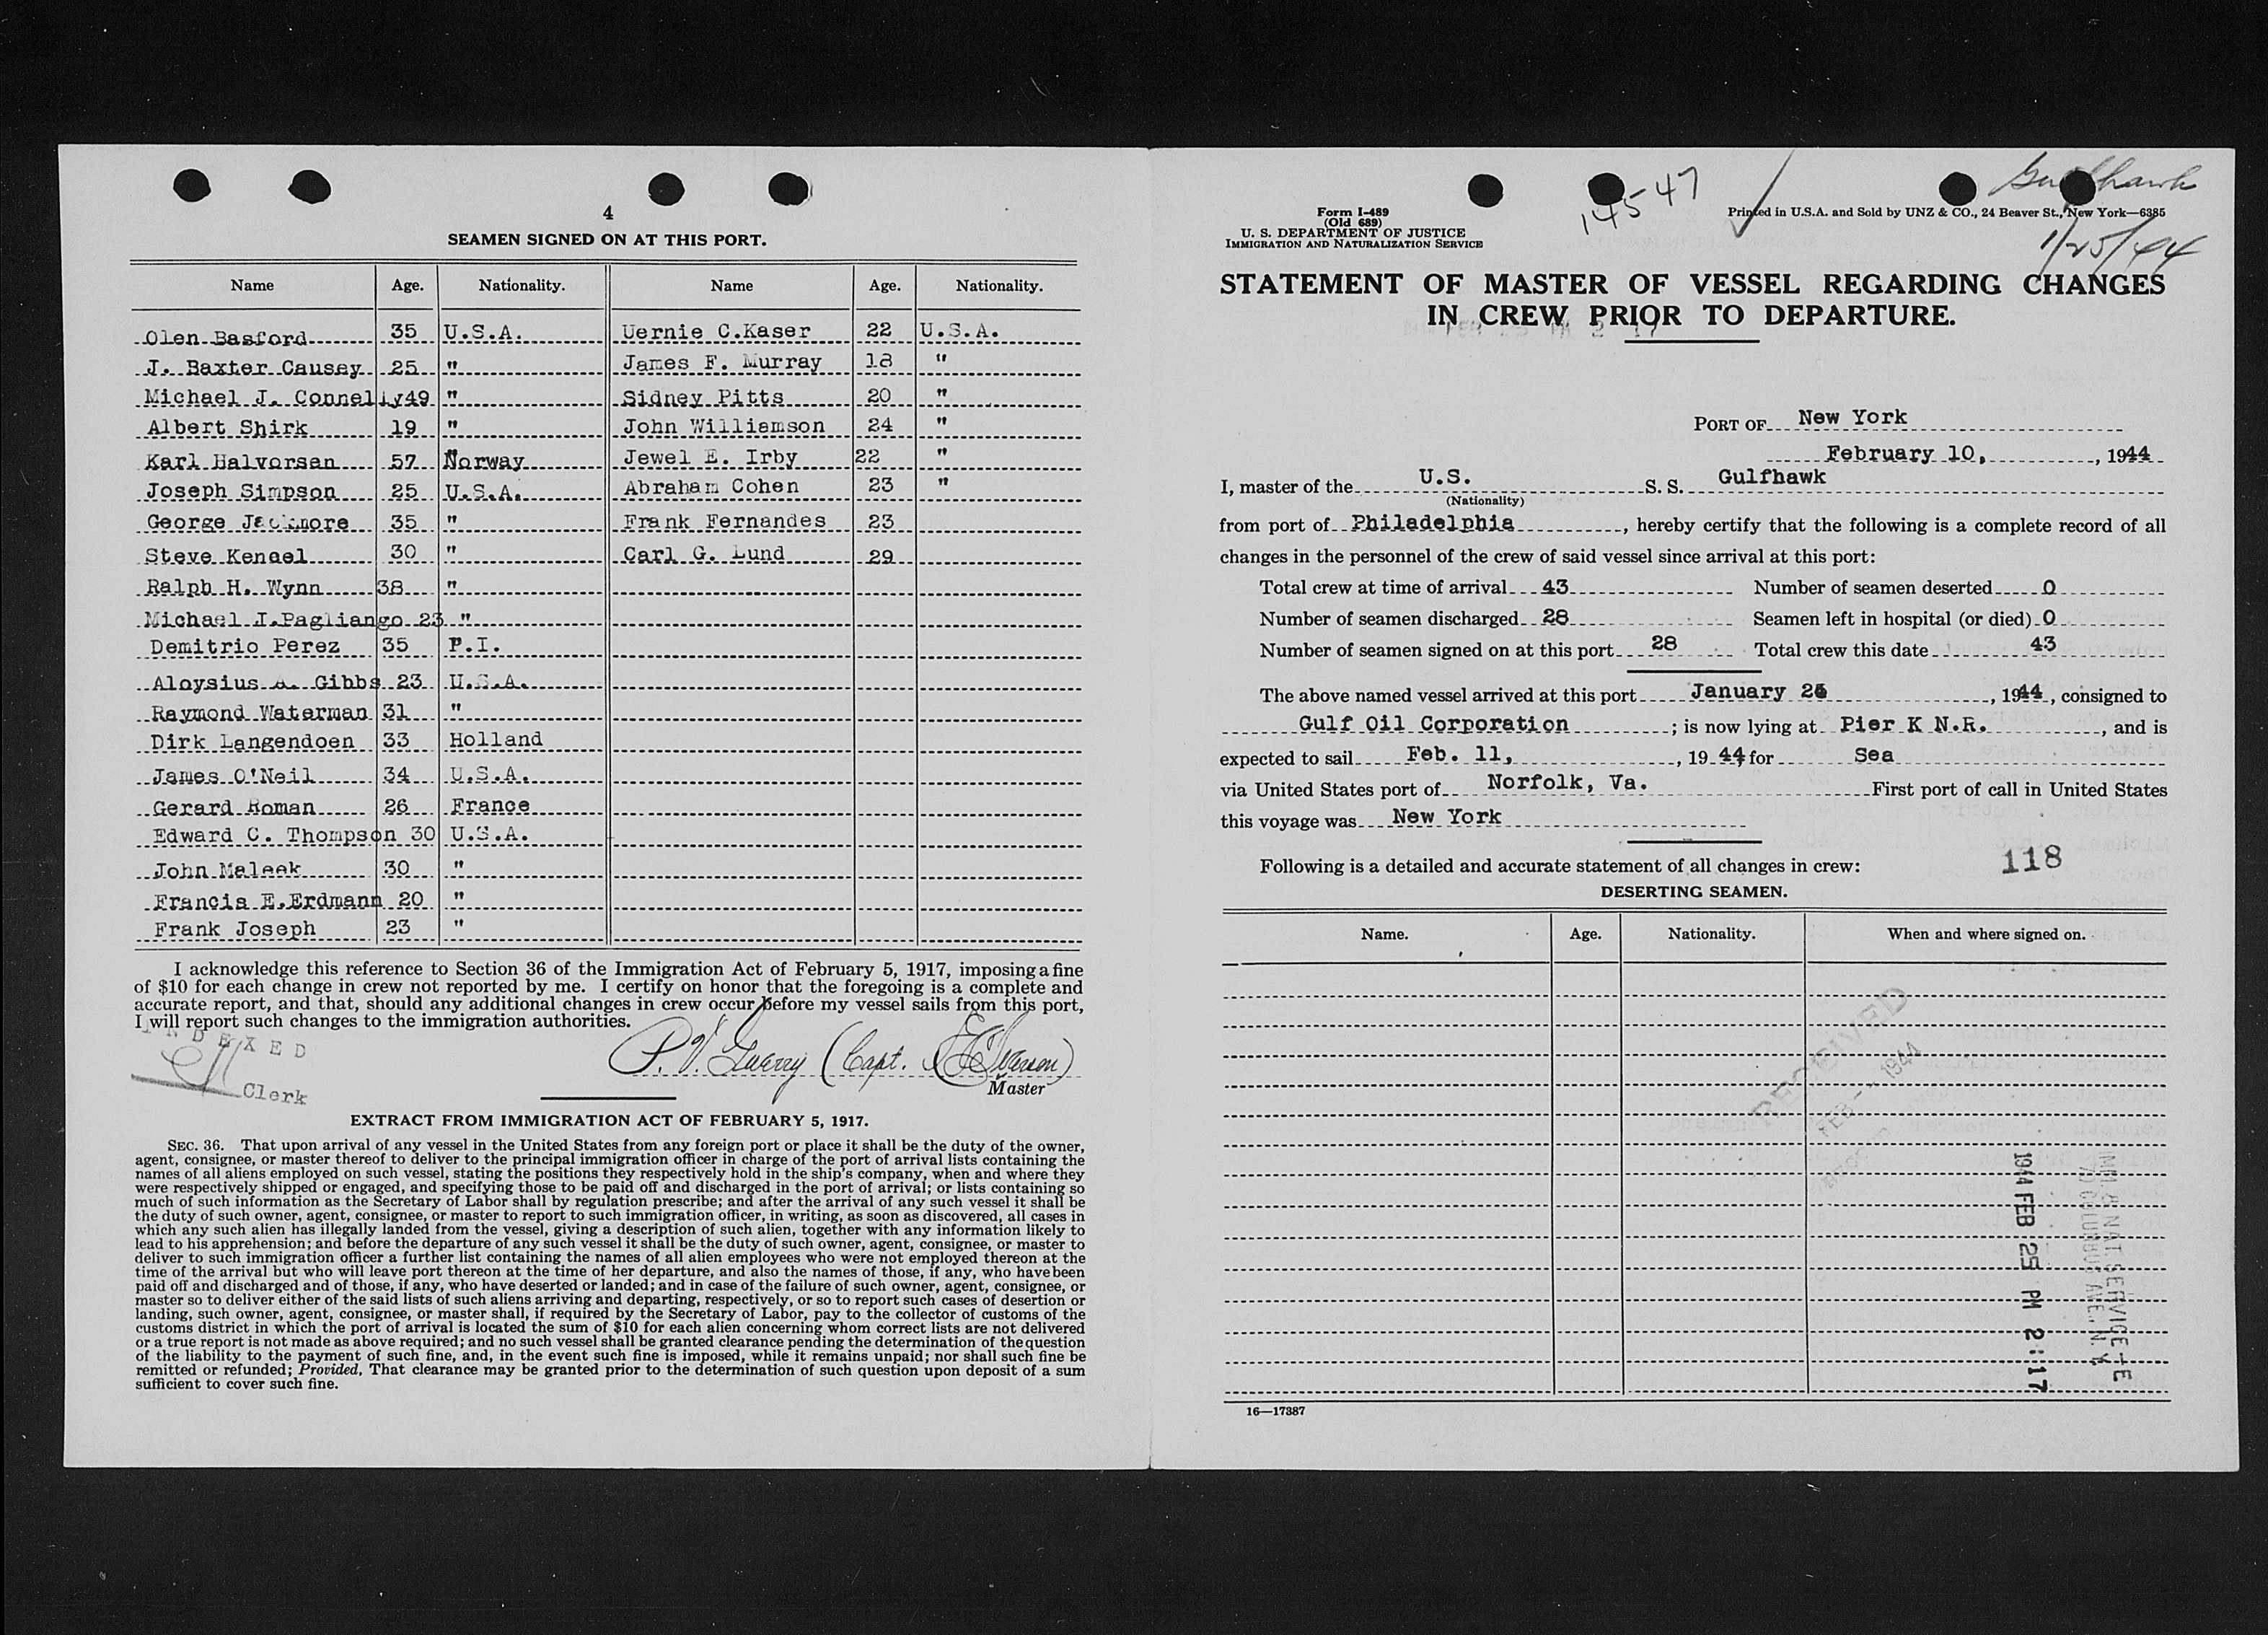 4
SEAMEN SIGNED ON AT THIS PORT.
Name Age. Nationality. Name Age. Nationality.
Olen Basford 35 U.S.A. Uernie C.Kaser 22 U.S.A.
J. Baxter Causey 25 " James F. Murray 18 "
Michael J. Connelly 49 " Sidney Pitts 20 "
Albert Shirk 19 " John Williamson 24 "
Karl Halvorsen 57 Norway Jewel E. Irby 22 "
Joseph Simpson 25 U.S.A. Abraham Cohen 23 "
George Jackmore 35 " Frank Fernandes 23
Steve Kengel 30 " Carl G. Lund 29
Ralph H. Wynn 38 "
Michael J.Pagliango 23 "
Demitrio Perez 35 P.I.
Aloysius A. Gibbs 23 U.S.A.
Raymond Waterman 31 "
Dirk Langendoen 33 Holland
James O'Neil 34 U.S.A.
Gerard Roman 26 France
Edward C. Thompson 30 U.S.A.
John Maleek 30 "
Francis E.Erdmann 20 "
Frank Joseph 23 "
I acknowledge this reference to Section 36 of the Immigration Act of February 5, 1917, imposing a fine
of $10 for each change in crew not reported by me. I certify on honor that the foregoing is a complete and
accurate report, and that, should any additional changes in crew occur before my vessel sails from this port,
I will report such changes to the immigration authorities.
INDEXED
Clerk
P. V. (Capt.
Master
EXTRACT FROM IMMIGRATION ACT OF FEBRUARY 5, 1917.
SEC. 36. That upon arrival of any vessel in the United States from any foreign port or place it shall be the duty of the owner,
agent, consignee, or master thereof to deliver to the principal immigration officer in charge of the port of arrival lists containing the
names of all aliens employed on such vessel, stating the positions they respectively hold in the ship's company, when and where they
were respectively shipped or engaged, and specifying those to be paid off and discharged in the port of arrival; or lists containing so
much of such information as the Secretary of Labor shall by regulation prescribe; and after the arrival of any such vessel it shall be
the duty of such owner, agent, consignee, or master to report to such immigration officer, in writing, as soon as discovered, all cases in
which any such alien has illegally landed from the vessel, giving a description of such alien, together with any information likely to
lead to his apprehension; and before the departure of any such vessel it shall be the duty of such owner, agent, consignee, or master to
deliver to such immigration officer a further list containing the names of all alien employees who were not employed thereon at the
time of the arrival but who will leave port thereon at the time of her departure, and also the names of those, if any, who have been
paid off and discharged and of those, if any, who have deserted or landed; and in case of the failure of such owner, agent, consignee, or
master so to deliver either of the said lists of such aliens arriving and departing, respectively, or so to report such cases of desertion or
landing, such owner, agent, consignee, or master shall, if required by the Secretary of Labor, pay to the collector of customs of the
customs district in which the port of arrival is located the sum of $10 for each alien concerning whom correct lists are not delivered
or a true report is not made as above required; and no such vessel shall be granted clearance pending the determination of the question
of the liability to the payment of such fine, and, in the event such fine is imposed, while it remains unpaid; nor shall such fine be
remitted or refunded; Provided, That clearance may be granted prior to the determination of such question upon deposit of a sum
sufficient to cover such fine.
Gulfhawk
14547
1/25/44
Form I-489
(Old 689)
U. S. DEPARTMENT OF JUSTICE
IMMIGRATION AND NATURALIZATION SERVICE
Printed in U.S.A. and Sold by UNZ & CO., 24 Beaver St., New York—6385
STATEMENT OF MASTER OF VESSEL REGARDING CHANGES
IN CREW PRIOR TO DEPARTURE.
PORT OF New York
February 10, , 1944
I, master of the U.S. S. S. Gulfhawk
(Nationality)
from port of Philadelphia , hereby certify that the following is a complete record of all
changes in the personnel of the crew of said vessel since arrival at this port:
Total crew at time of arrival 43 Number of seamen deserted 0
Number of seamen discharged 28 Seamen left in hospital (or died) 0
Number of seamen signed on at this port 28 Total crew this date 43
The above named vessel arrived at this port January 25 , 1944, consigned to
Gulf Oil Corporation ; is now lying at Pier K N.R. , and is
expected to sail Feb. 11, , 1944 for Sea
via United States port of Norfolk, Va. First port of call in United States
this voyage was New York
Following is a detailed and accurate statement of all changes in crew:
118
DESERTING SEAMEN.
Name. Age. Nationality. When and where signed on.
RECEIVED
FEB 1944
1944 FEB 25 PM 2:17
IMM. & NAT. SERVICE
70 COLUMBUS AVE., N.Y.
16—17387